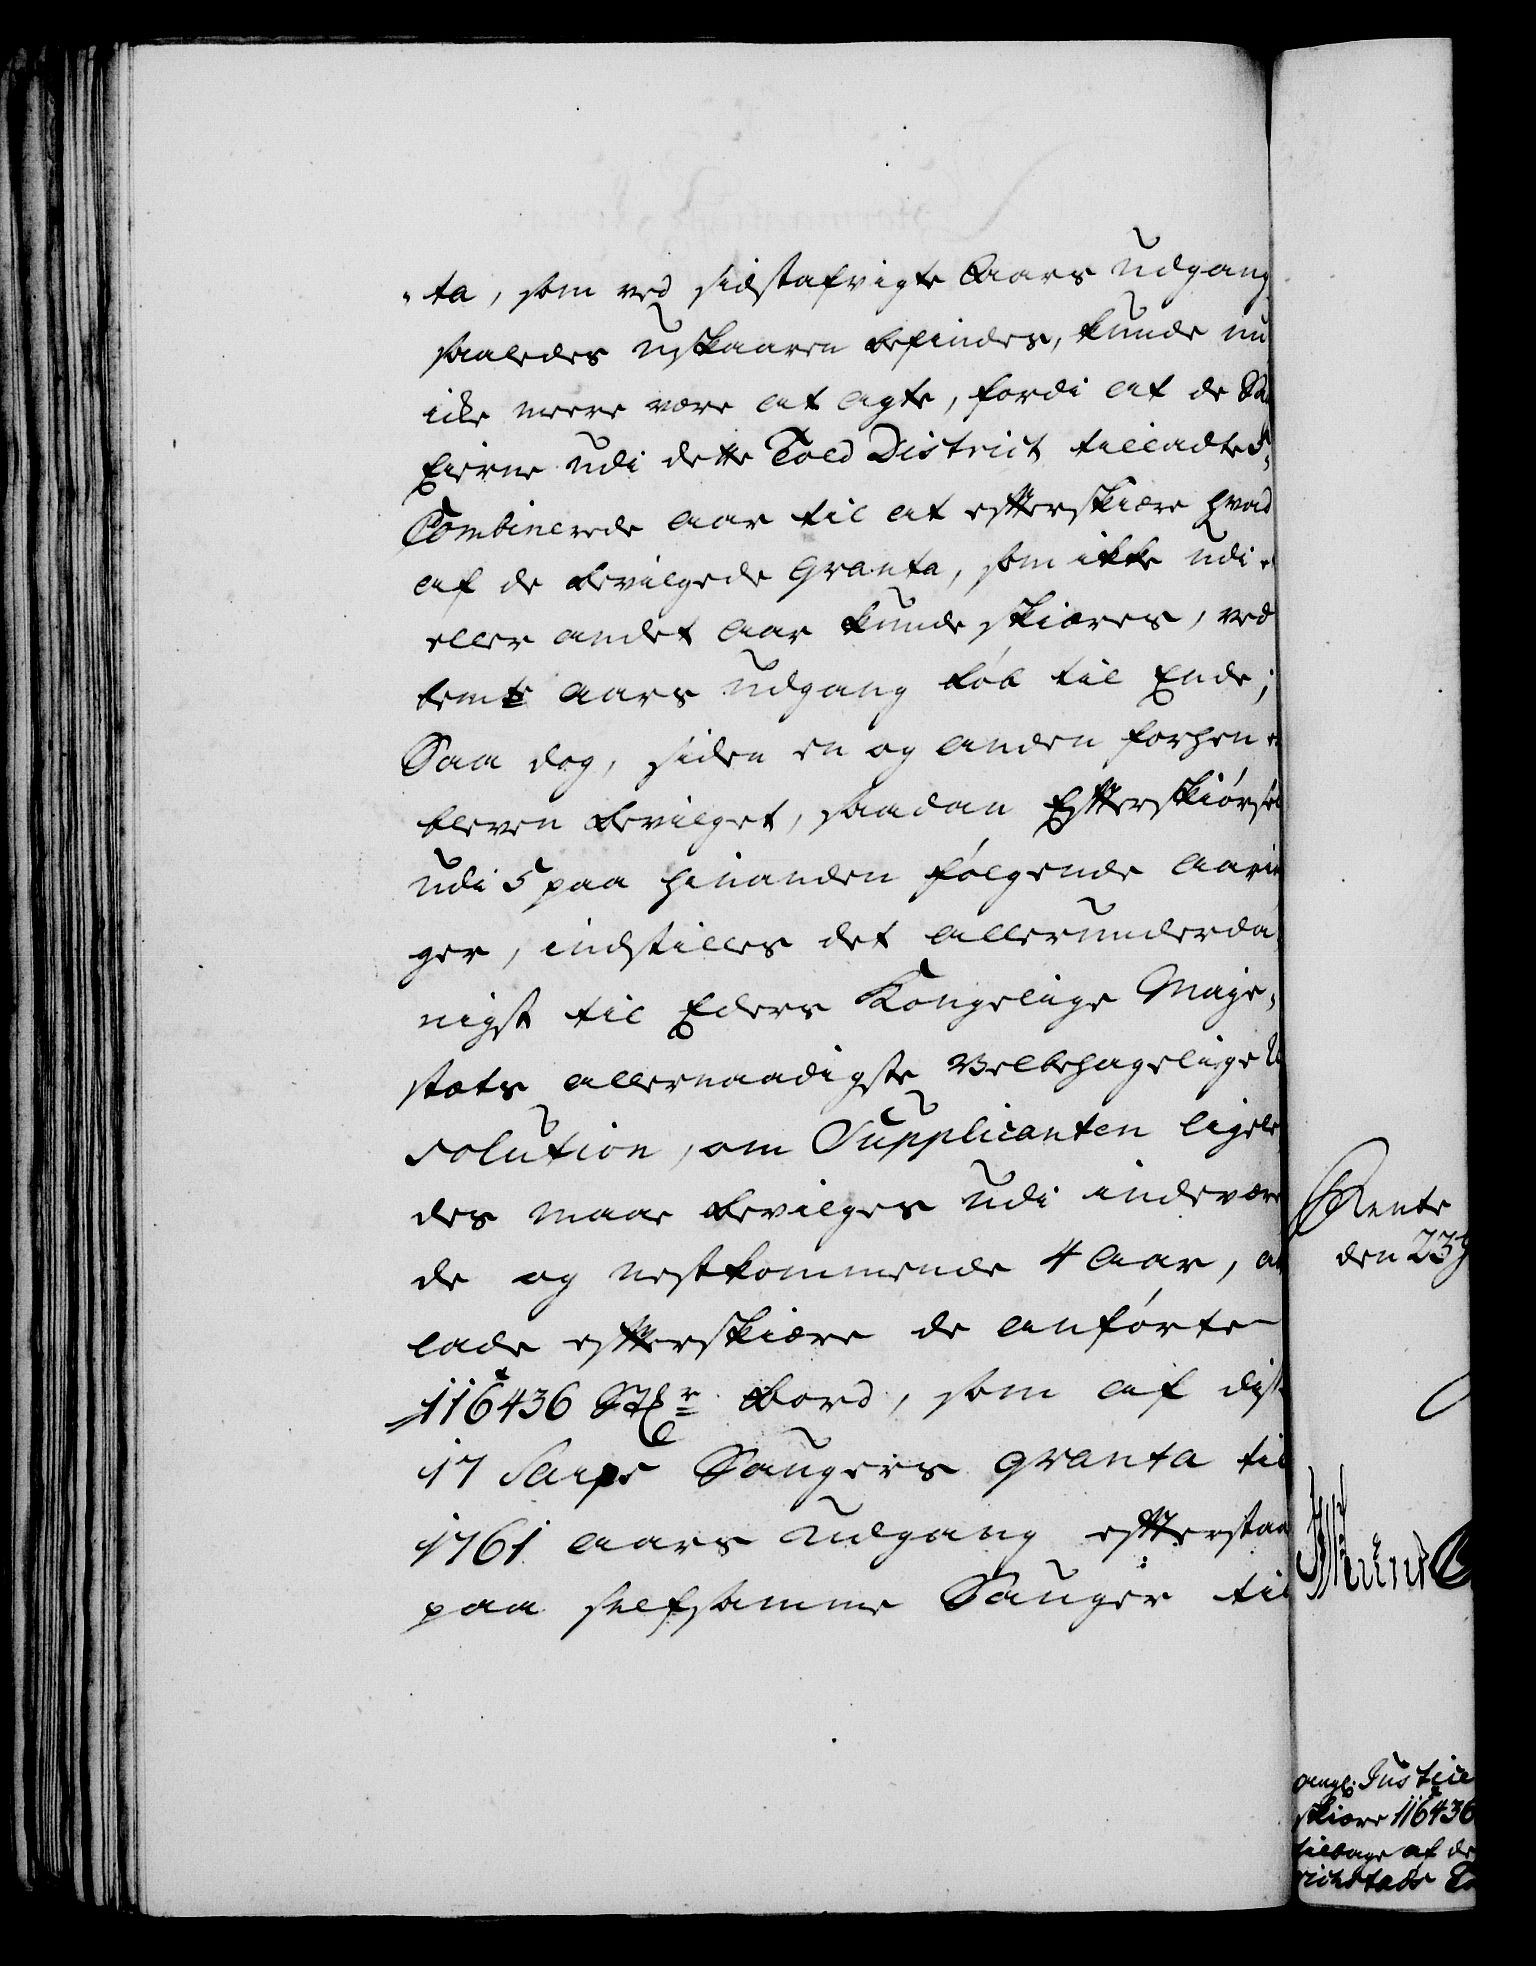 „ta, som ved sidstafvigte Aars Udgang
saaledes uskaaren befindes, kunde nu
icke meere være at agte, fordi at de
Eierne udi dette Told District tilladte 5,
Combinerede aar til at efterskiære hvad
af de bevilgede Qvanta, som ikke udi e
eller andet aar kunde skiæres, ved
bemte aars Udgang løb til Ende;
Saa dog, siden en og anden forhen e
bleven bevilget, saadan Efterskiørsel
udi 5 paa hinanden følgende aarin
ger, indstilles det allerunderda
nigst til Eders Kongelige Maje,
stæts allernaadigste Velbehagelige
solution, om Supplicanten ligele
des maae bevilges udi indevære
de og nestkommende 4 Aar, at
lade efterskiære de anførte
116436 Stkr Bord, som af diss
17 Sarps Saugers Qvanta til
1761 aars Udgang efterstaa
paa selfsamme Sauger til
Rente
den 23
Justice
skiære 116436
tilbage af de
richstads To